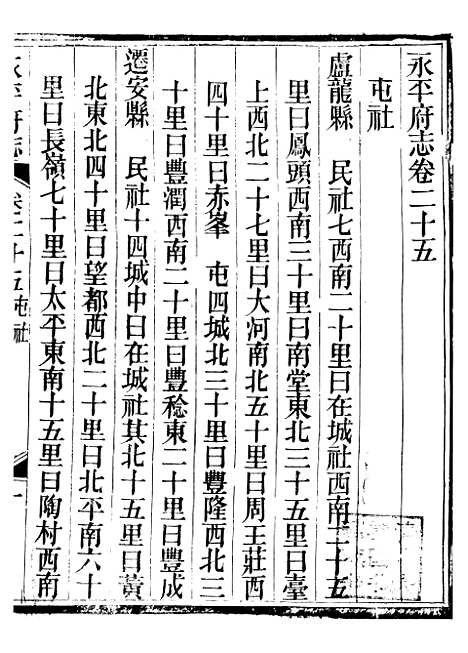 永平府志卷二十五
屯社
盧龍縣　民社七西南二十里曰在城社西南二十五
里曰鳳頭西南三十里曰南堂東北三十五里曰臺
上西北二十七里曰大河南北五十里曰周王莊西
四十里曰赤峯　屯四城北三十里曰豐隆西北三
十里曰豐潤西南二十里曰豐稔東二十里曰豐成
遷安縣　民社十四城中曰在城社其北十五里曰黃
北東北四十里曰望都西北二十里曰北平南六十
里曰長嶺七十里曰太平東南十五里曰陶村西南
永平府志　卷二十五屯社　一